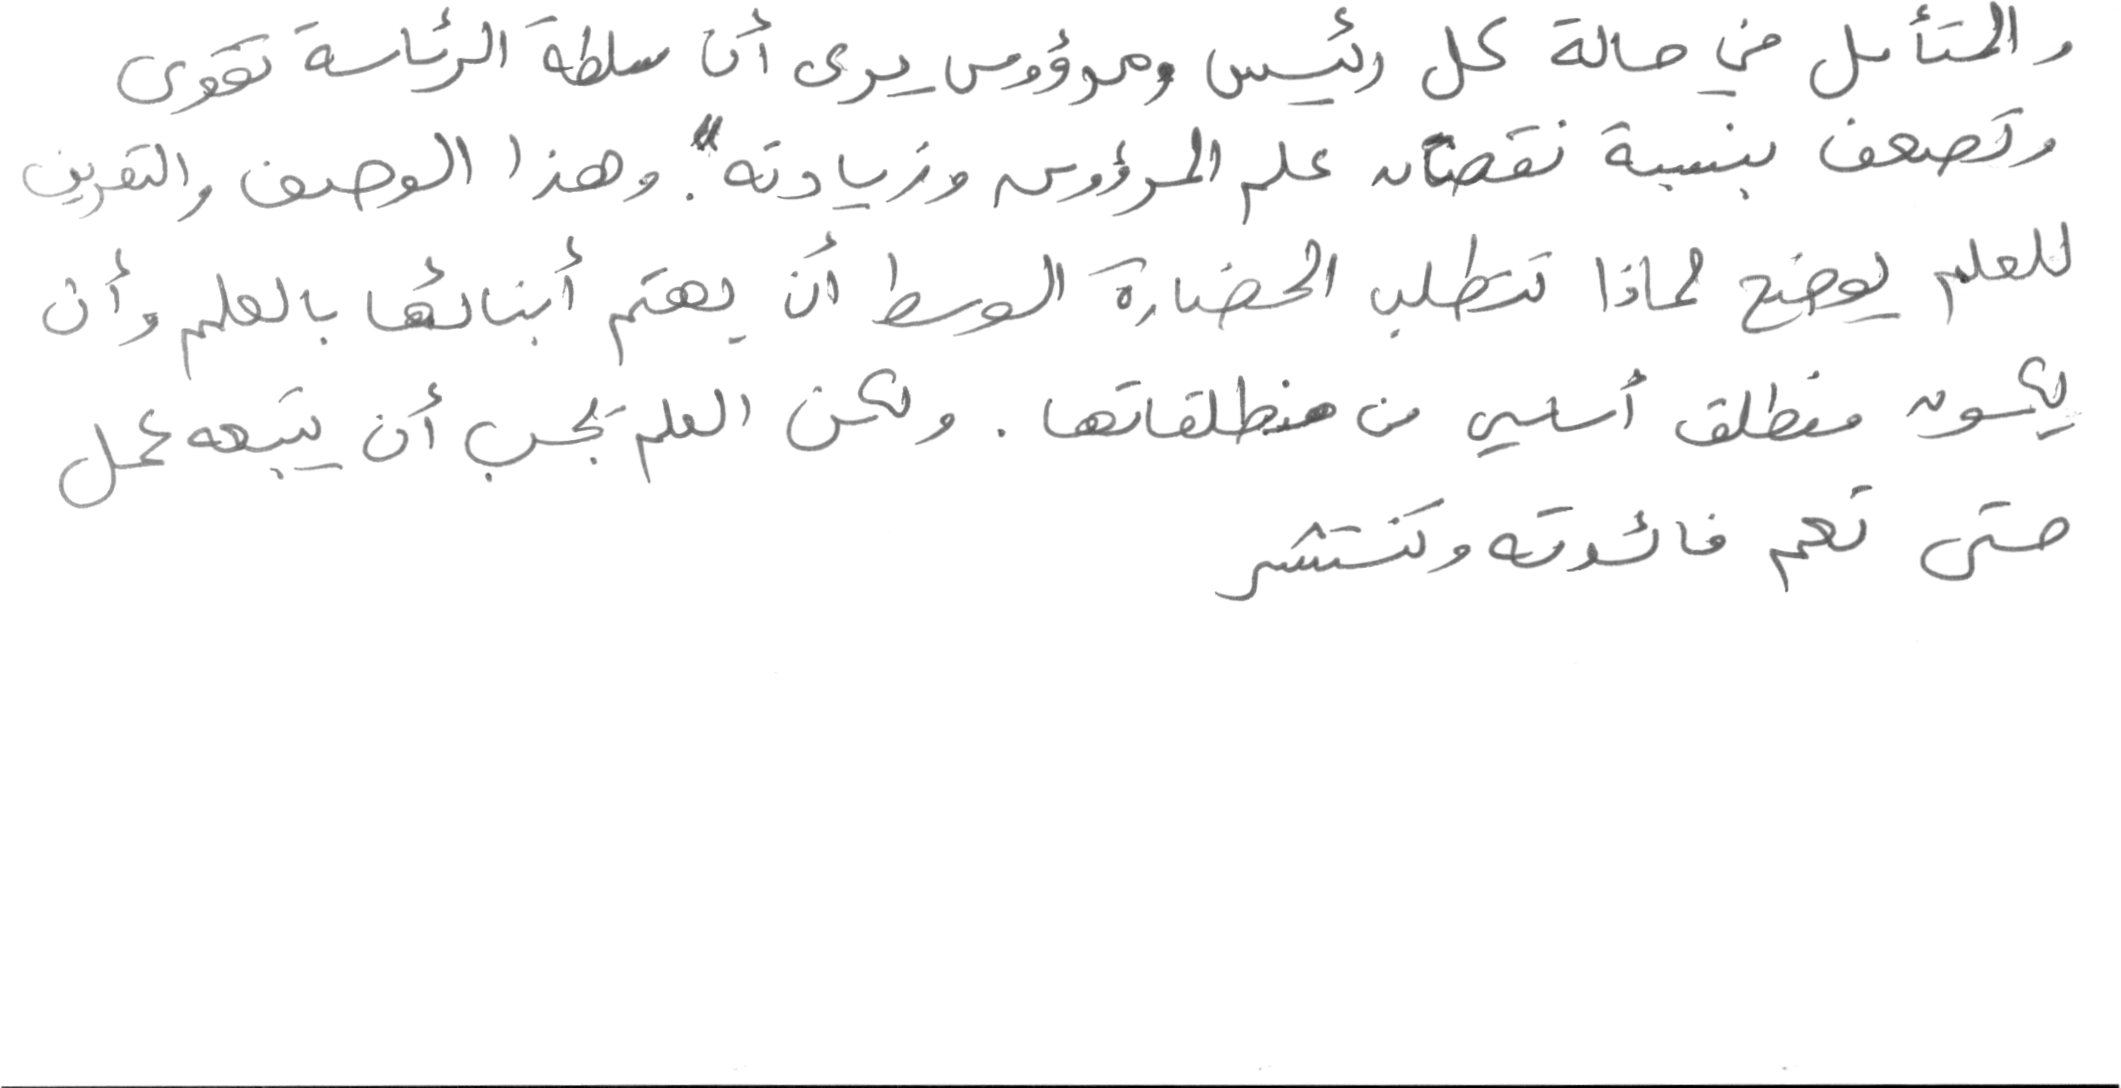 والمتأمل في حالة كل رئيس ومرؤوس يرى أن سلطة الرئاسة تقوى
وتضعف بنسبة نقصان علم المرؤوس وزيادته". وهذا الوصف والتعريف
للعلم يوضح لماذا تتطلب الحضارة الوسط أن يهتم أبنائها بالعلم وأن
يكون منطلق أساسي من منطلقاتها. ولكن العلم يجب أن يتبعه عمل
حتى تعم فائدته وتنتشر